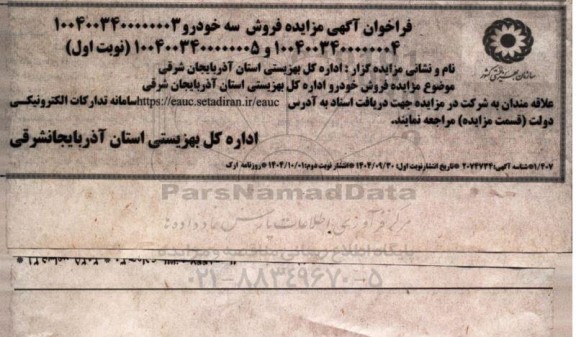 فراخوان آگهی مزایده فروش سه خودرو ۱۰۰۴۰۰۳۴۰۰۰۰۰۰۰۳
۱۰۰۴۰۰۳۴۰۰۰۰۰۰۰۴ و ۱۰۰۴۰۰۳۴۰۰۰۰۰۰۰۵ (نوبت اول)
نام و نشانی مزایده گزار : اداره کل بهزیستی استان آذربایجان شرقی
موضوع مزایده فروش خودرو اداره کل بهزیستی استان آذربایجان شرقی
علاقه مندان به شرکت در مزایده جهت دریافت اسناد به آدرس https://eauc.setadiran.ir/eauc سامانه تدارکات الکترونیکی
دولت (قسمت مزایده) مراجعه نمایند.
اداره کل بهزیستی استان آذربایجانشرقی
۱/۴۰۷ *شناسه آگهی: ۲۰۷۴۷۳۴ *تاریخ انتشار نوبت اول: ۱۴۰۴/۰۹/۳۰ *انتشار نوبت دوم: ۱۴۰۴/۱۰/۰۱ *روزنامه ارک
سازمان بهزیستی کشور
ParsNamadData
مرکز فرآوری اطلاعات پارس نماد داده ها
پایگاه اطلاع رسانی مناقصه و مزایده
۰۲۱-۸۸۳۴۹۶۷۰-۵